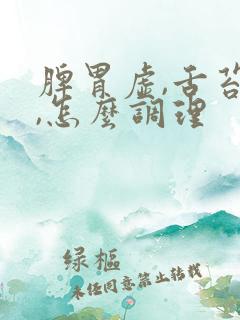 脾胃虛,舌苔
,怎麼調理
綠樞
未经同意禁止转载